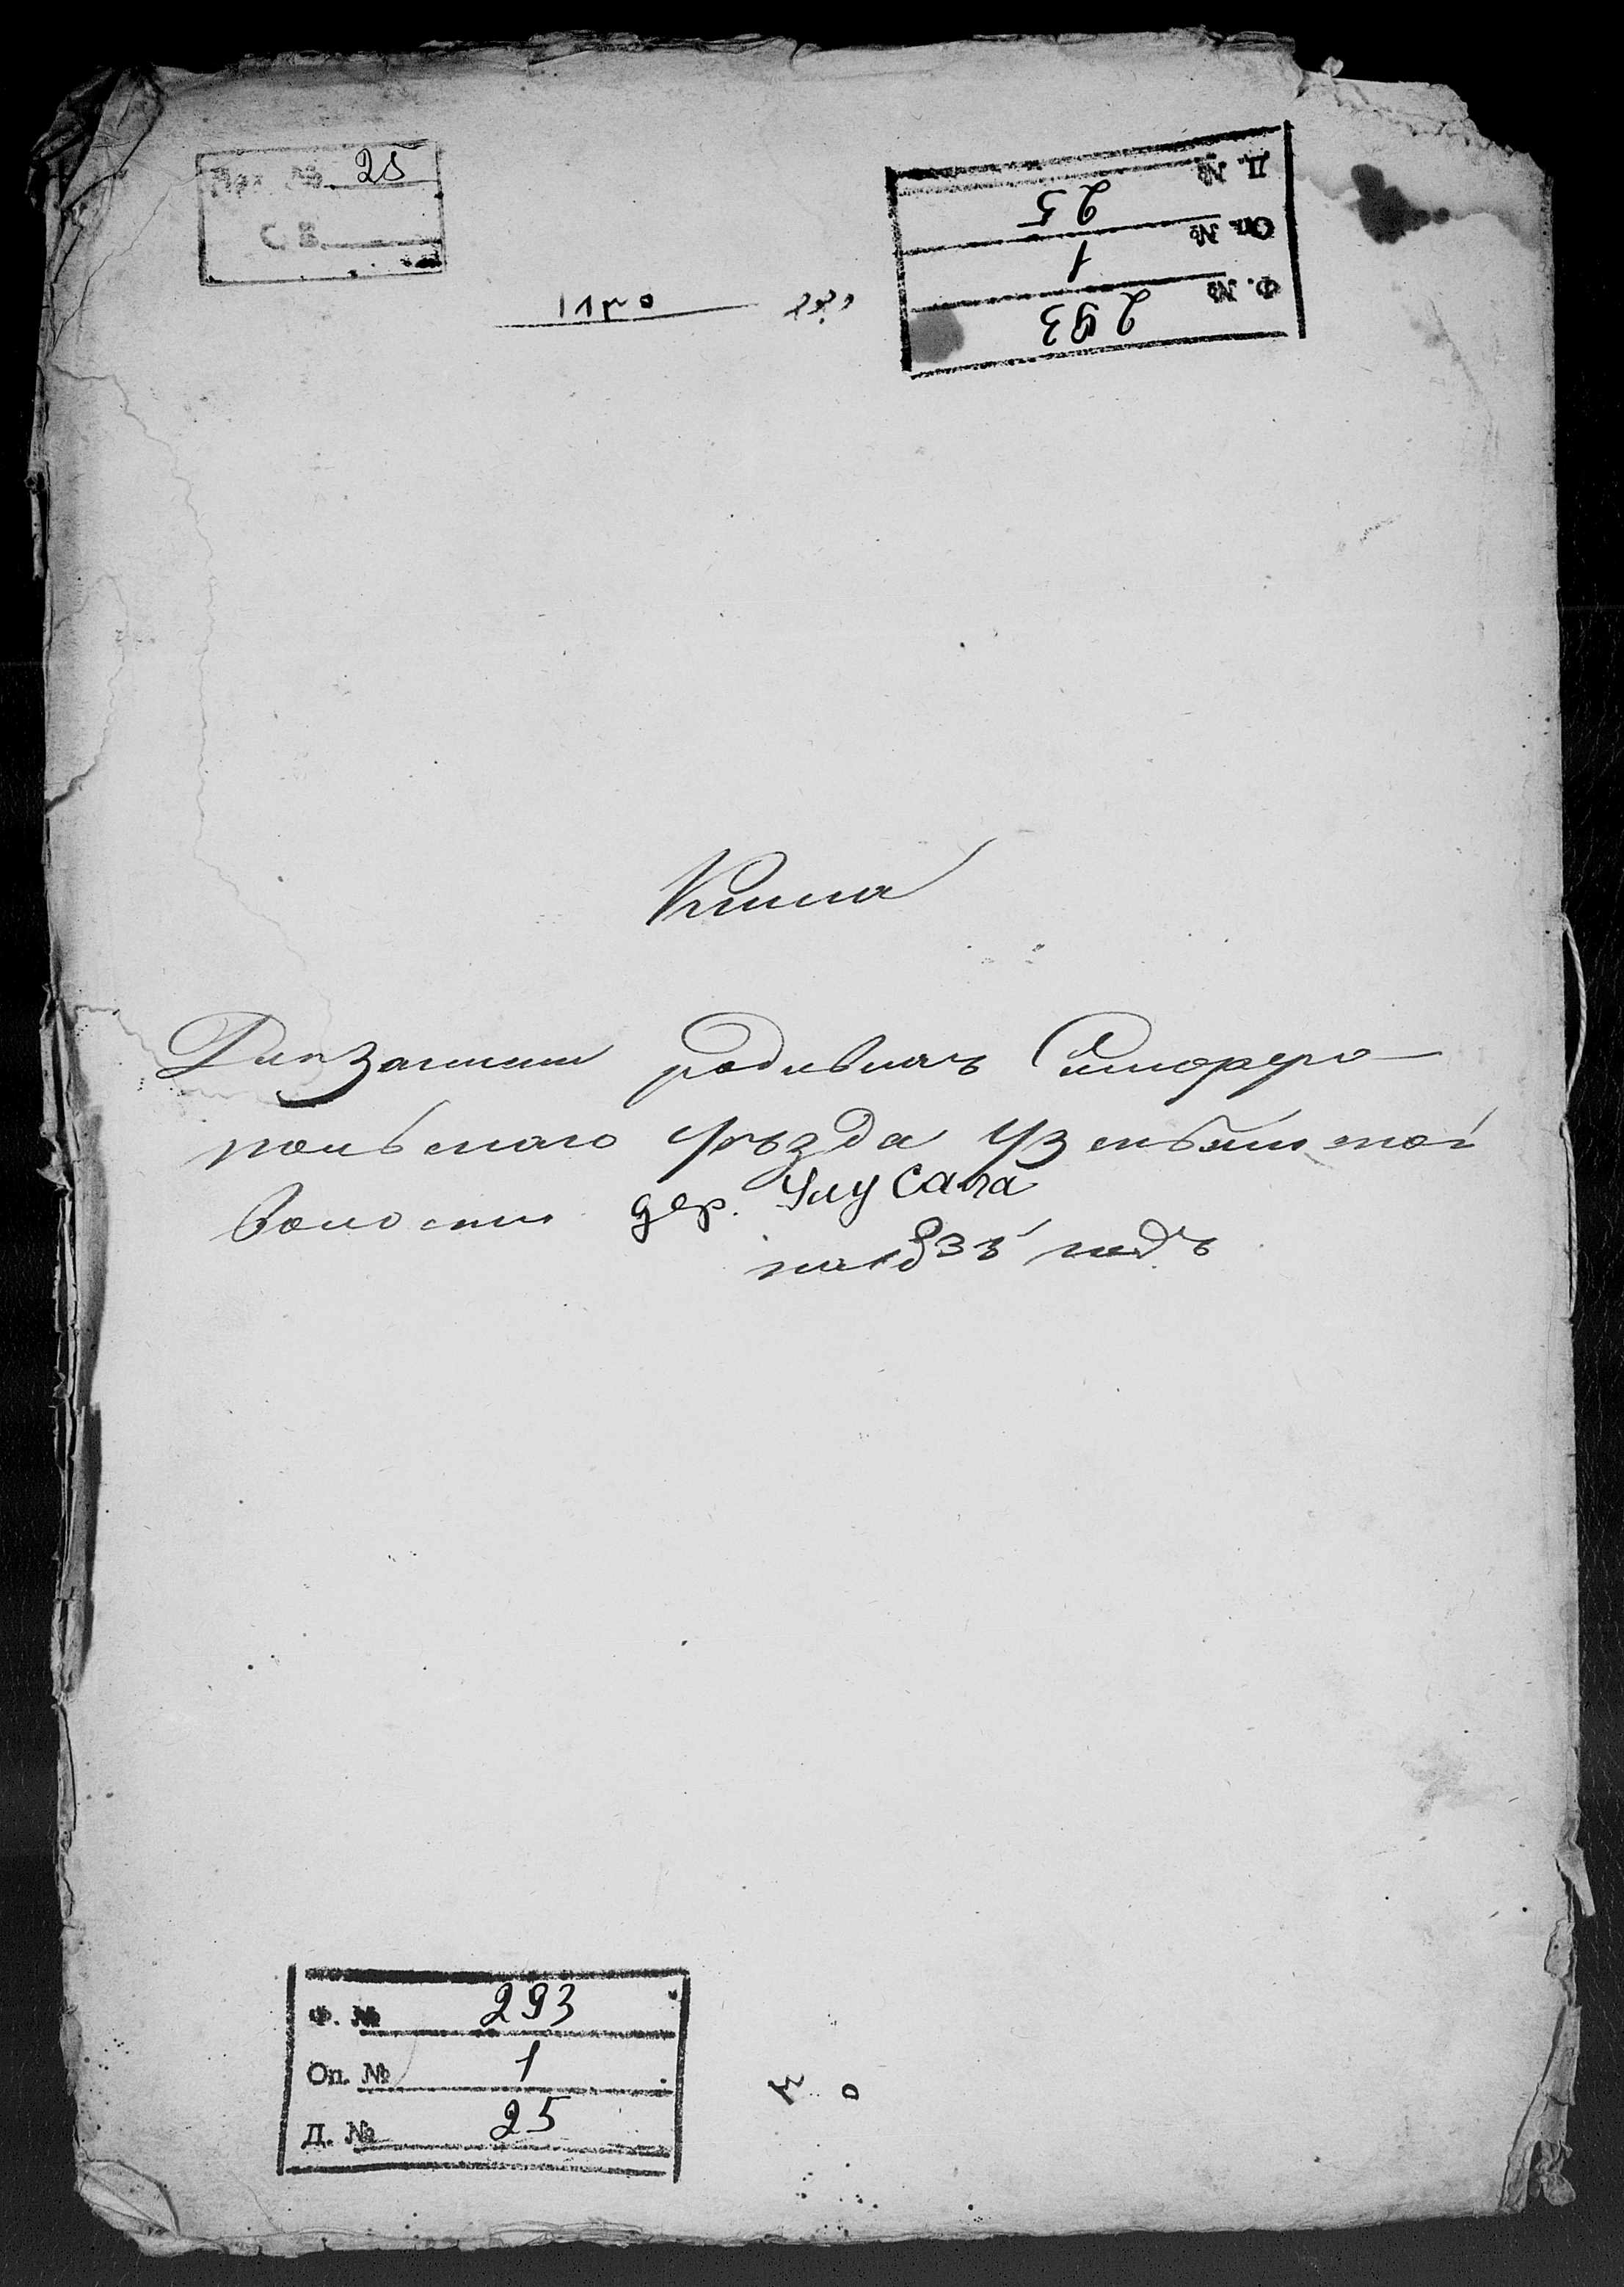 Арх. № 25
С. В.
Д. № 25
Оп. № 1
Ф. № 293
١٨٣٥
Книга
Для записки родившихъ Симферо-
польскаго уѣзда Узенбашской
волости дер. Улу Сала
на годъ
Ф. № 293
Оп. № 1
Д. № 25